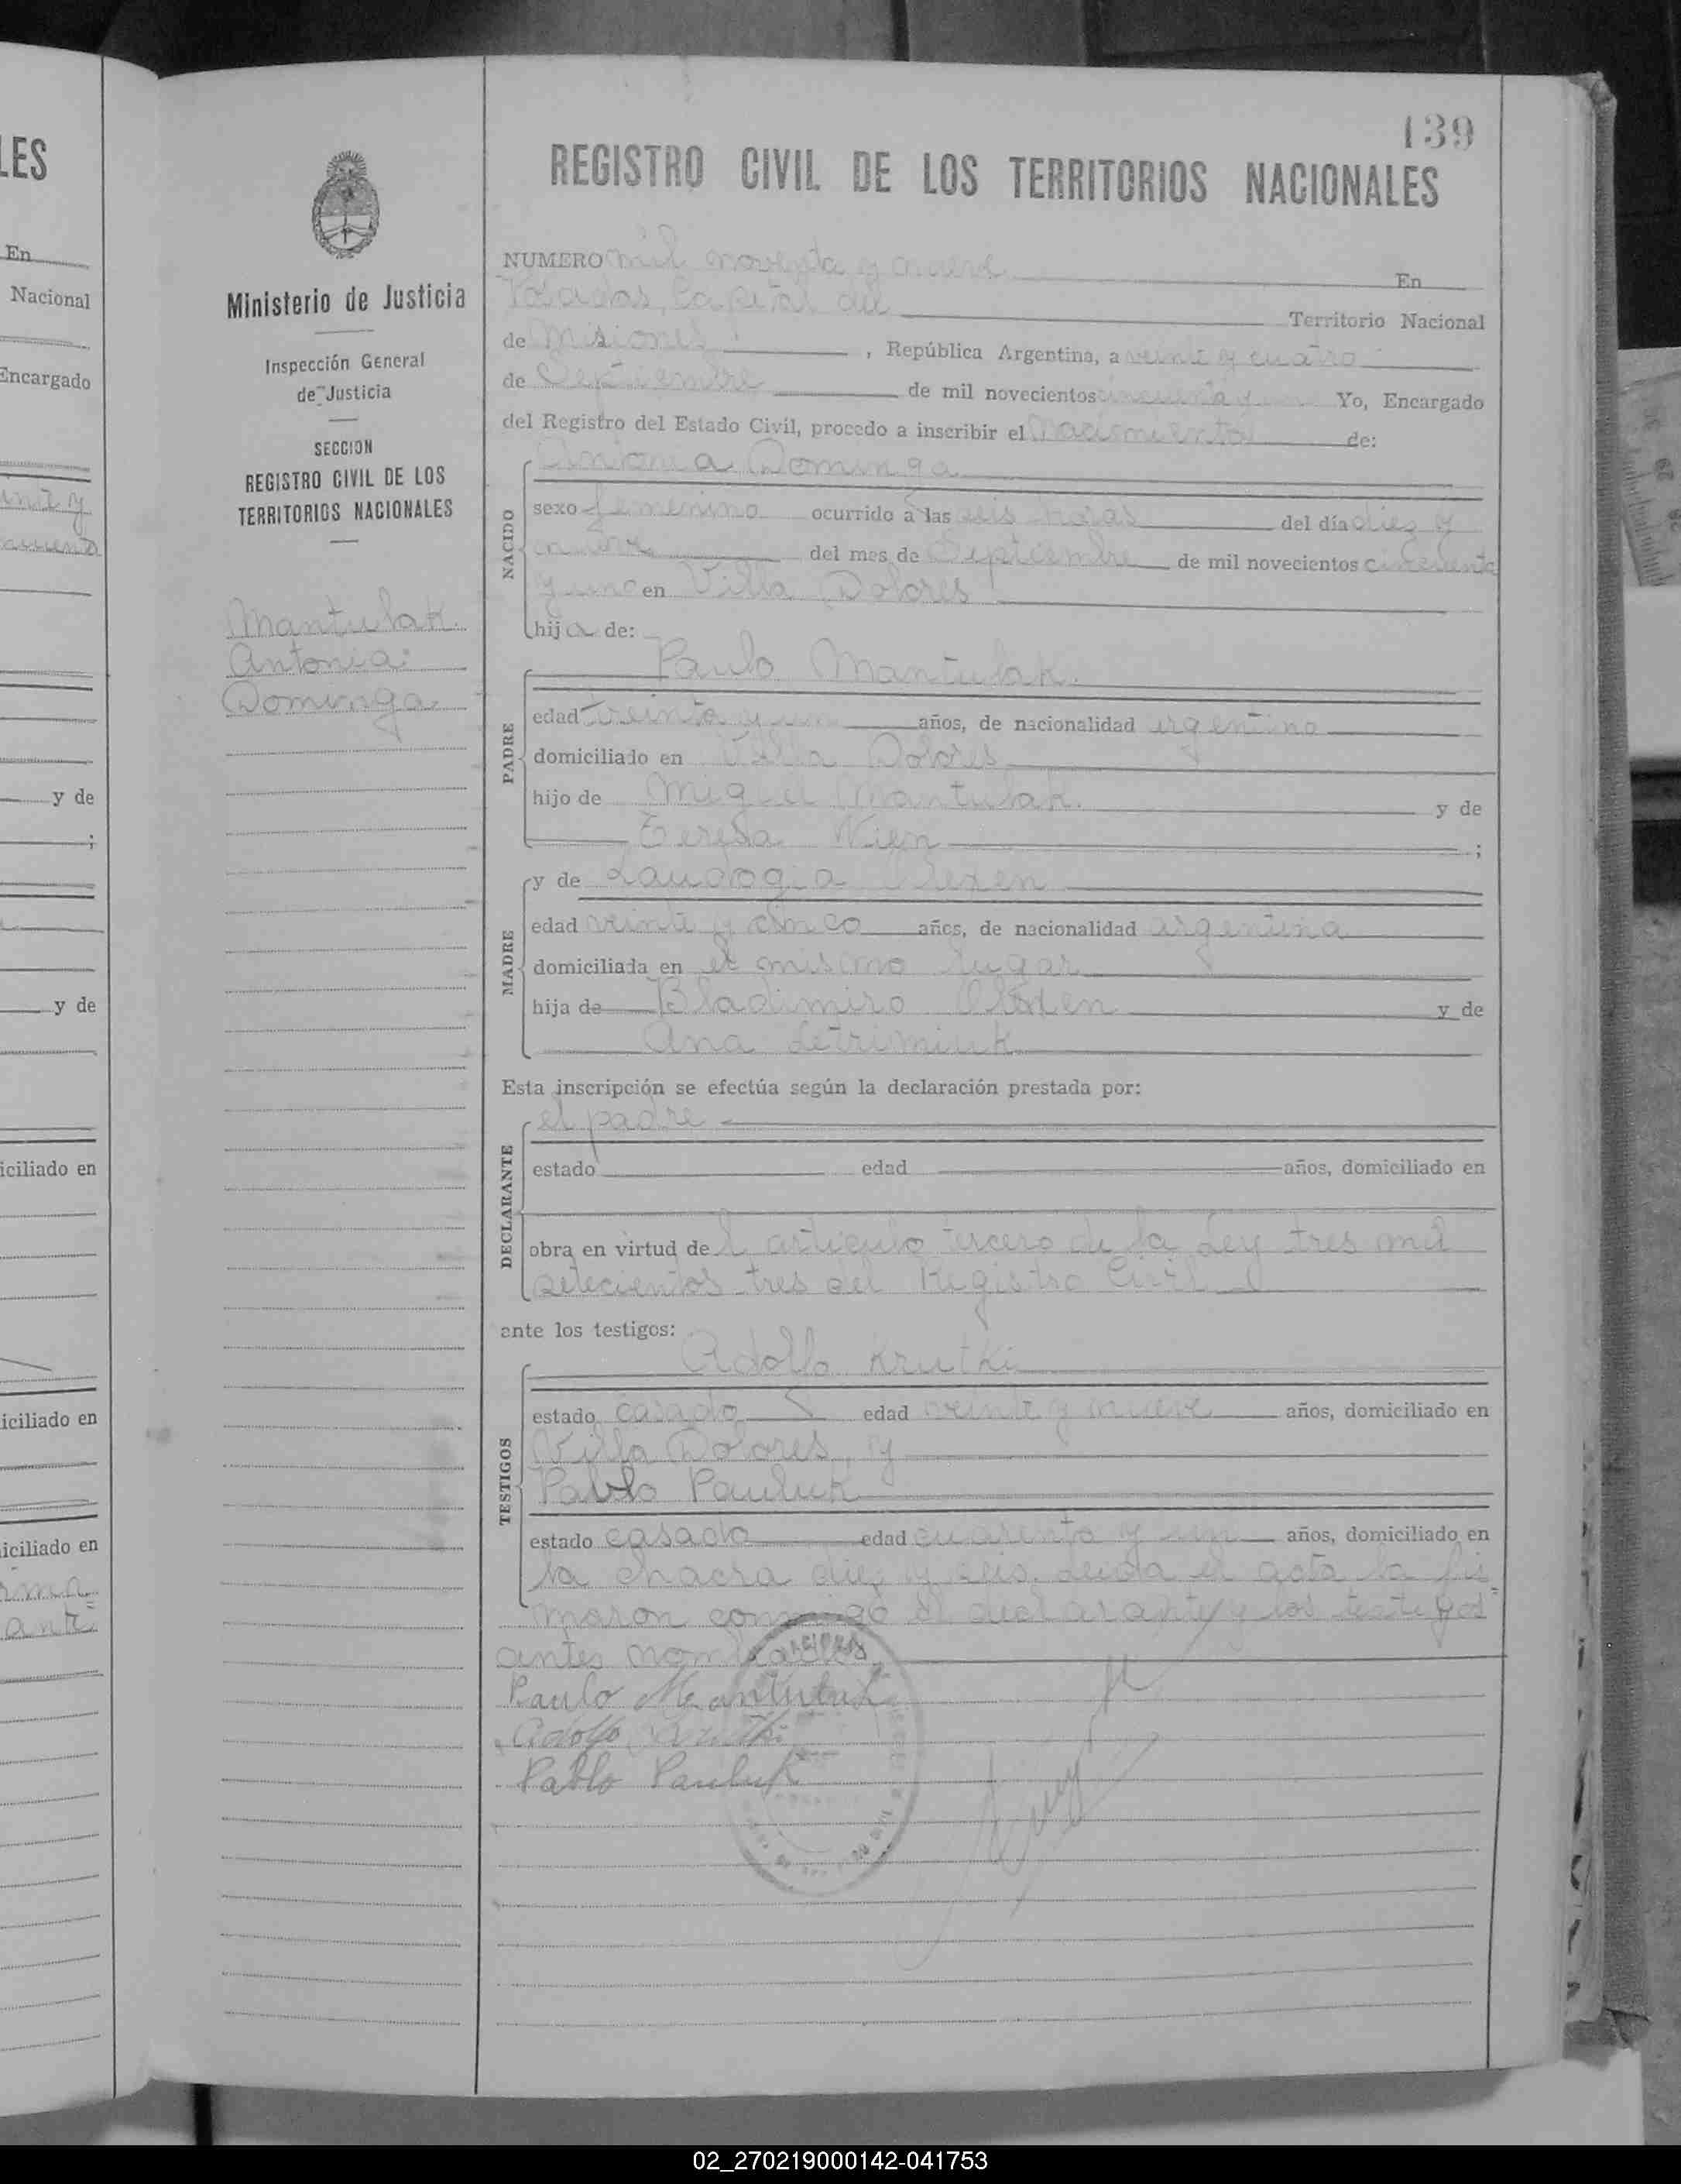 LES
En
Nacional
Encargado
y de
;
y de
iciliado en
iciliado en
iciliado en
139
Ministerio de Justicia
Inspección General
de Justicia
SECCION
REGISTRO CIVIL DE LOS
TERRITORIOS NACIONALES
Mantulak
Antonia
Dominga
REGISTRO CIVIL DE LOS TERRITORIOS NACIONALES
NUMERO mil noventa y nueve En
Posadas, Capital del Territorio Nacional
de Misiones, República Argentina, a veinte y cuatro
de Septiembre de mil novecientos cincuenta y un Yo, Encargado
del Registro del Estado Civil, procedo a inscribir el Nacimiento de:
NACIDO
Antonia Dominga
sexo femenino ocurrido a las seis horas del día diez y
nueve del mes de Septiembre de mil novecientos cincuenta
y uno en Villa Dolores
hija de:
PADRE
Paulo Mantulak.
edad treinta y un años, de nacionalidad argentino
domiciliado en Villa Dolores
hijo de Miguel Mantulak. y de
Teresa Wien ;
MADRE
y de
edad veinte y cinco años, de nacionalidad argentina
domiciliada en el mismo lugar
hija de Bladimiro y de
Ana
Esta inscripción se efectúa según la declaración prestada por:
DECLARANTE
el padre
estado edad años, domiciliado en
obra en virtud del articulo tercero de la Ley tres mil
setecientos tres del Registro Civil
ante los testigos:
TESTIGOS
Adolfo Krutki
estado casado edad veinte y nueve años, domiciliado en
Villa Dolores, y
Pablo Pauluk
estado casado edad cuarenta y un años, domiciliado en
la chacra diez y seis. Leida el acta la fir=
maron conmigo el declarante y los testigos
antes nombrados
Paulo Mantulak
Adolfo Krutki
Pablo Pauluk
02_270219000142-041753